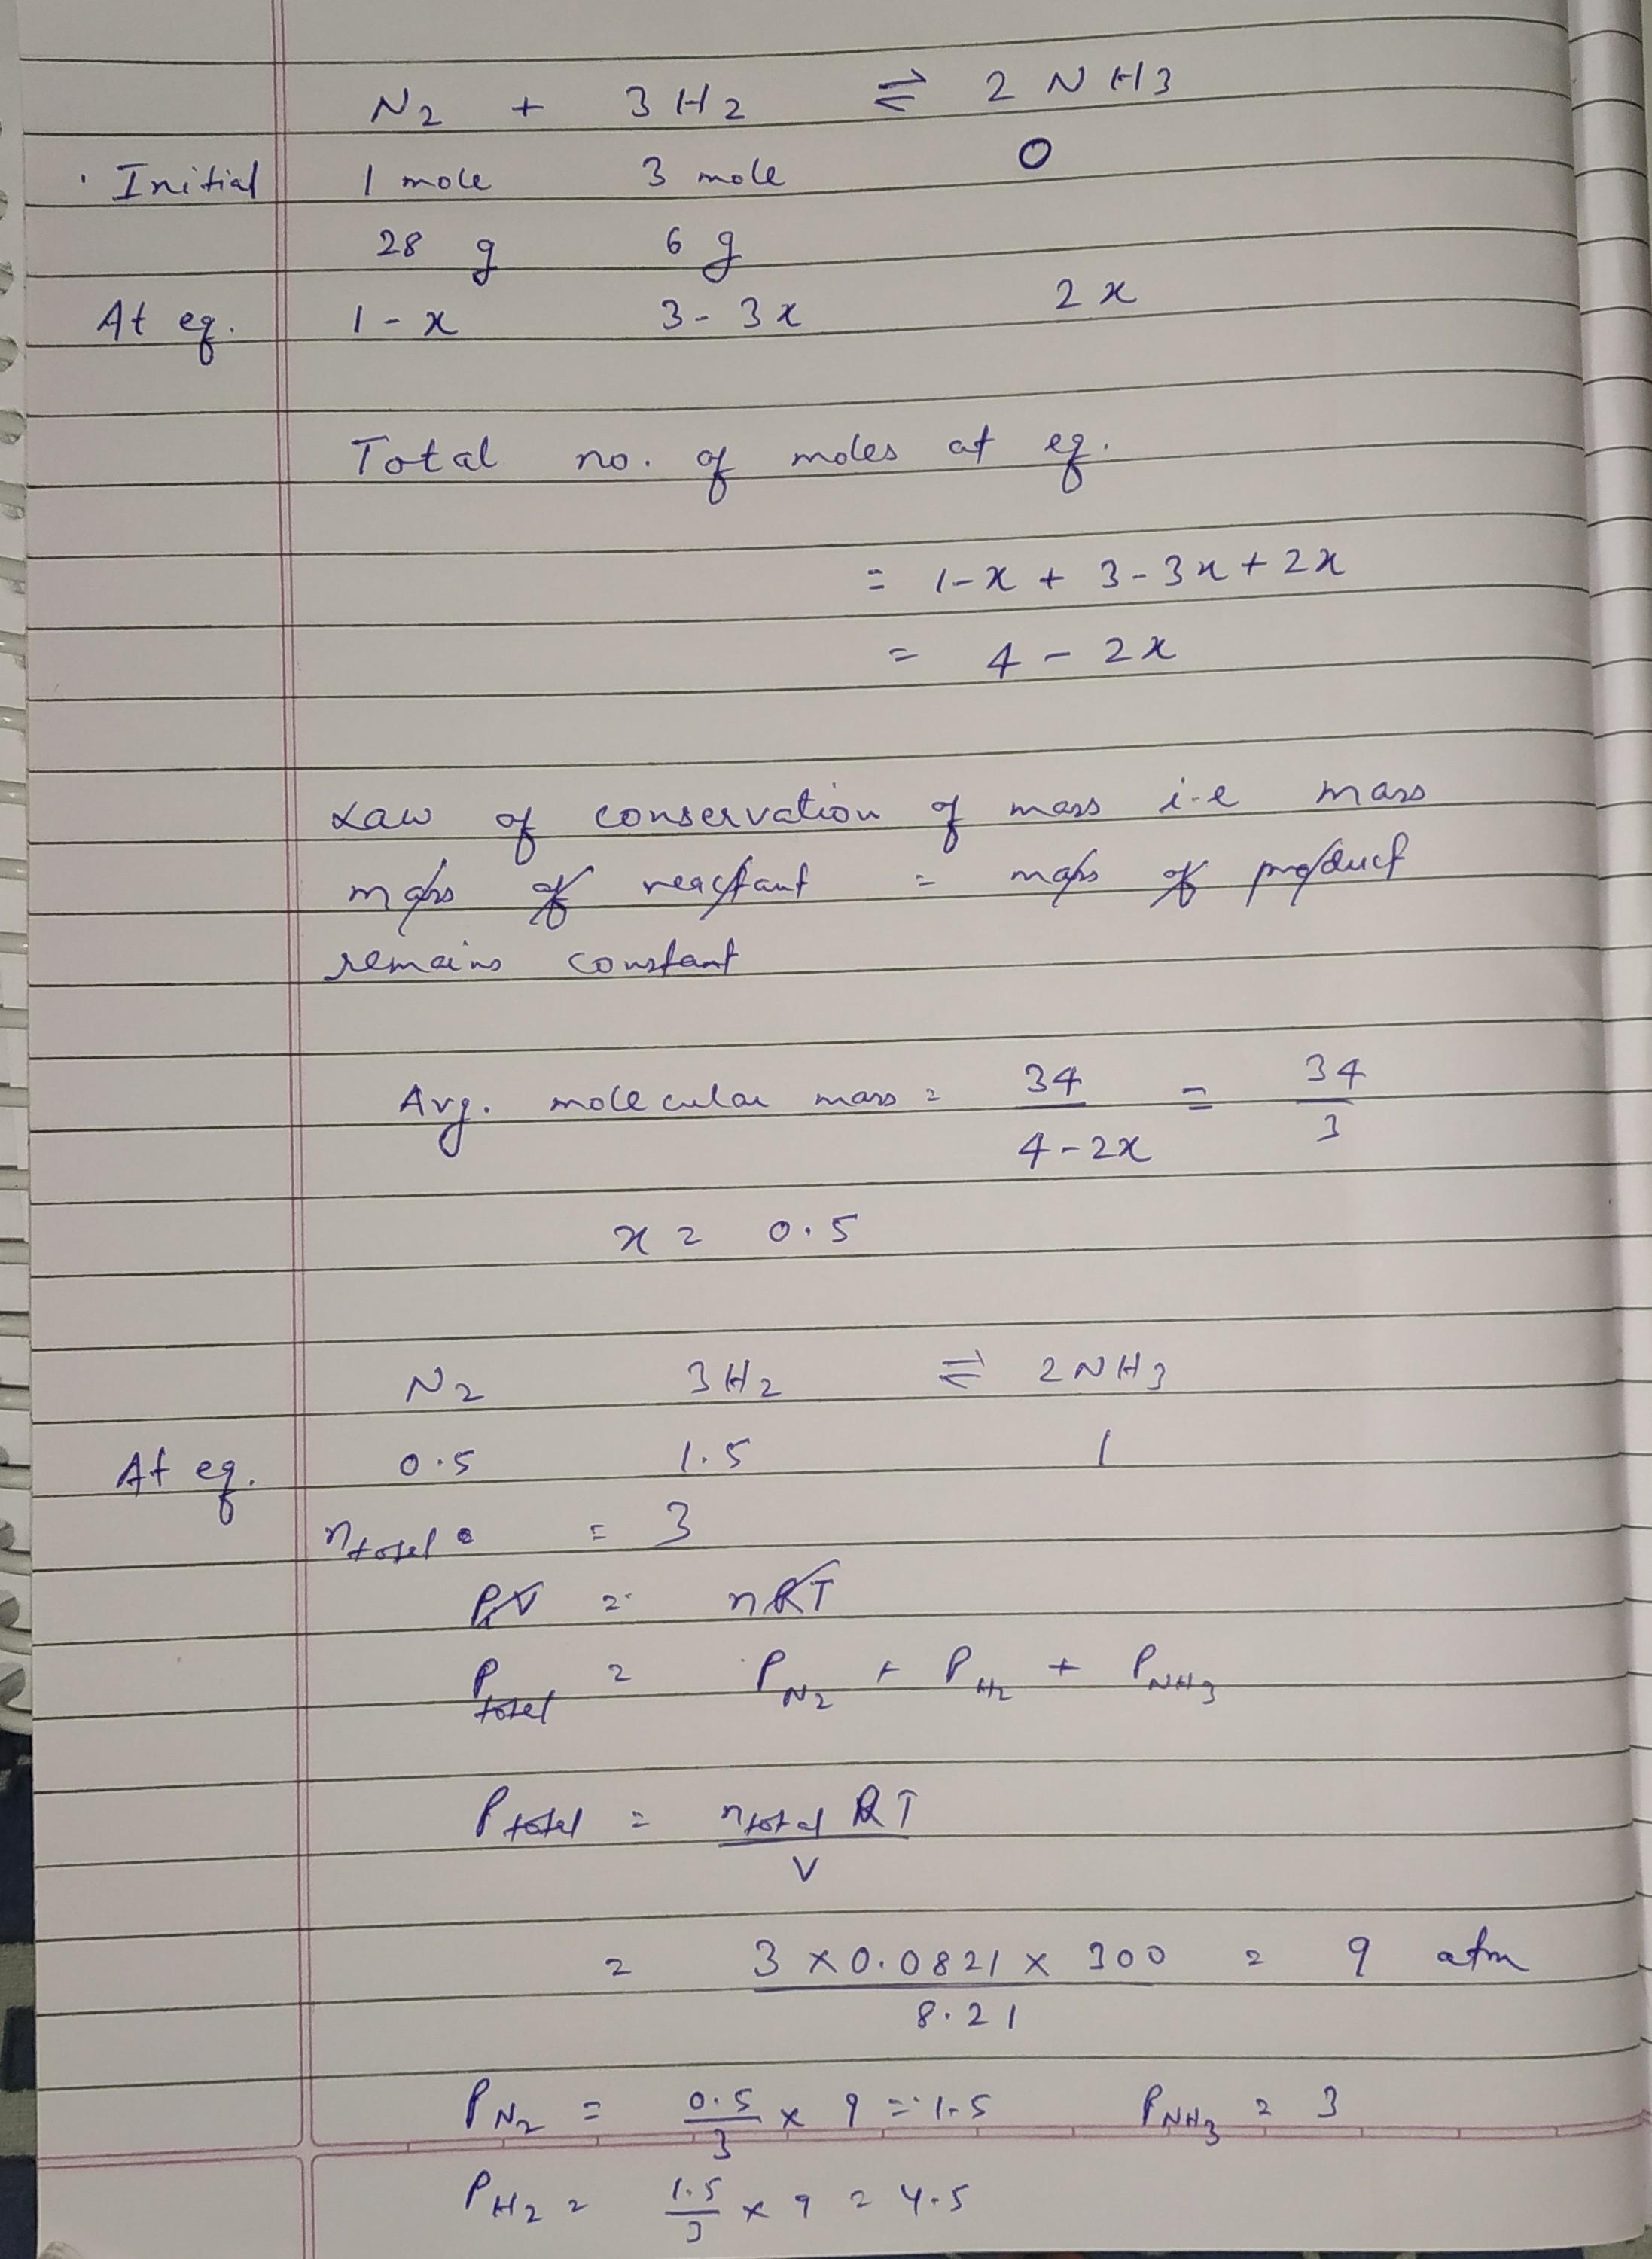 N2 + 3H2 ⇌ 2NH3
Initial 1 mole 3 mole 0
28 g 6 g
At eq. 1-x 3-3x 2x
Total no. of moles at eq.
= 1-x + 3-3x+2x
= 4-2x
Law of conservation of mass i.e mass
mass of reactant = mass of product
remains constant
Avg. molecular mass = 34/(4-2x) = 34/3
x = 0.5
N2 3H2 ⇌ 2NH3
At eq. 0.5 1.5 1
ntotal = 3
PV = nRT
Ptotal = PN2 + PH2 + PNH3
Ptotal = ntotal RT / V
= 3 x 0.0821 x 300 / 8.21 = 9 atm
PN2 = 0.5/3 x 9 = 1.5 PNH3 = 3
PH2 = 1.5/3 x 9 = 4.5